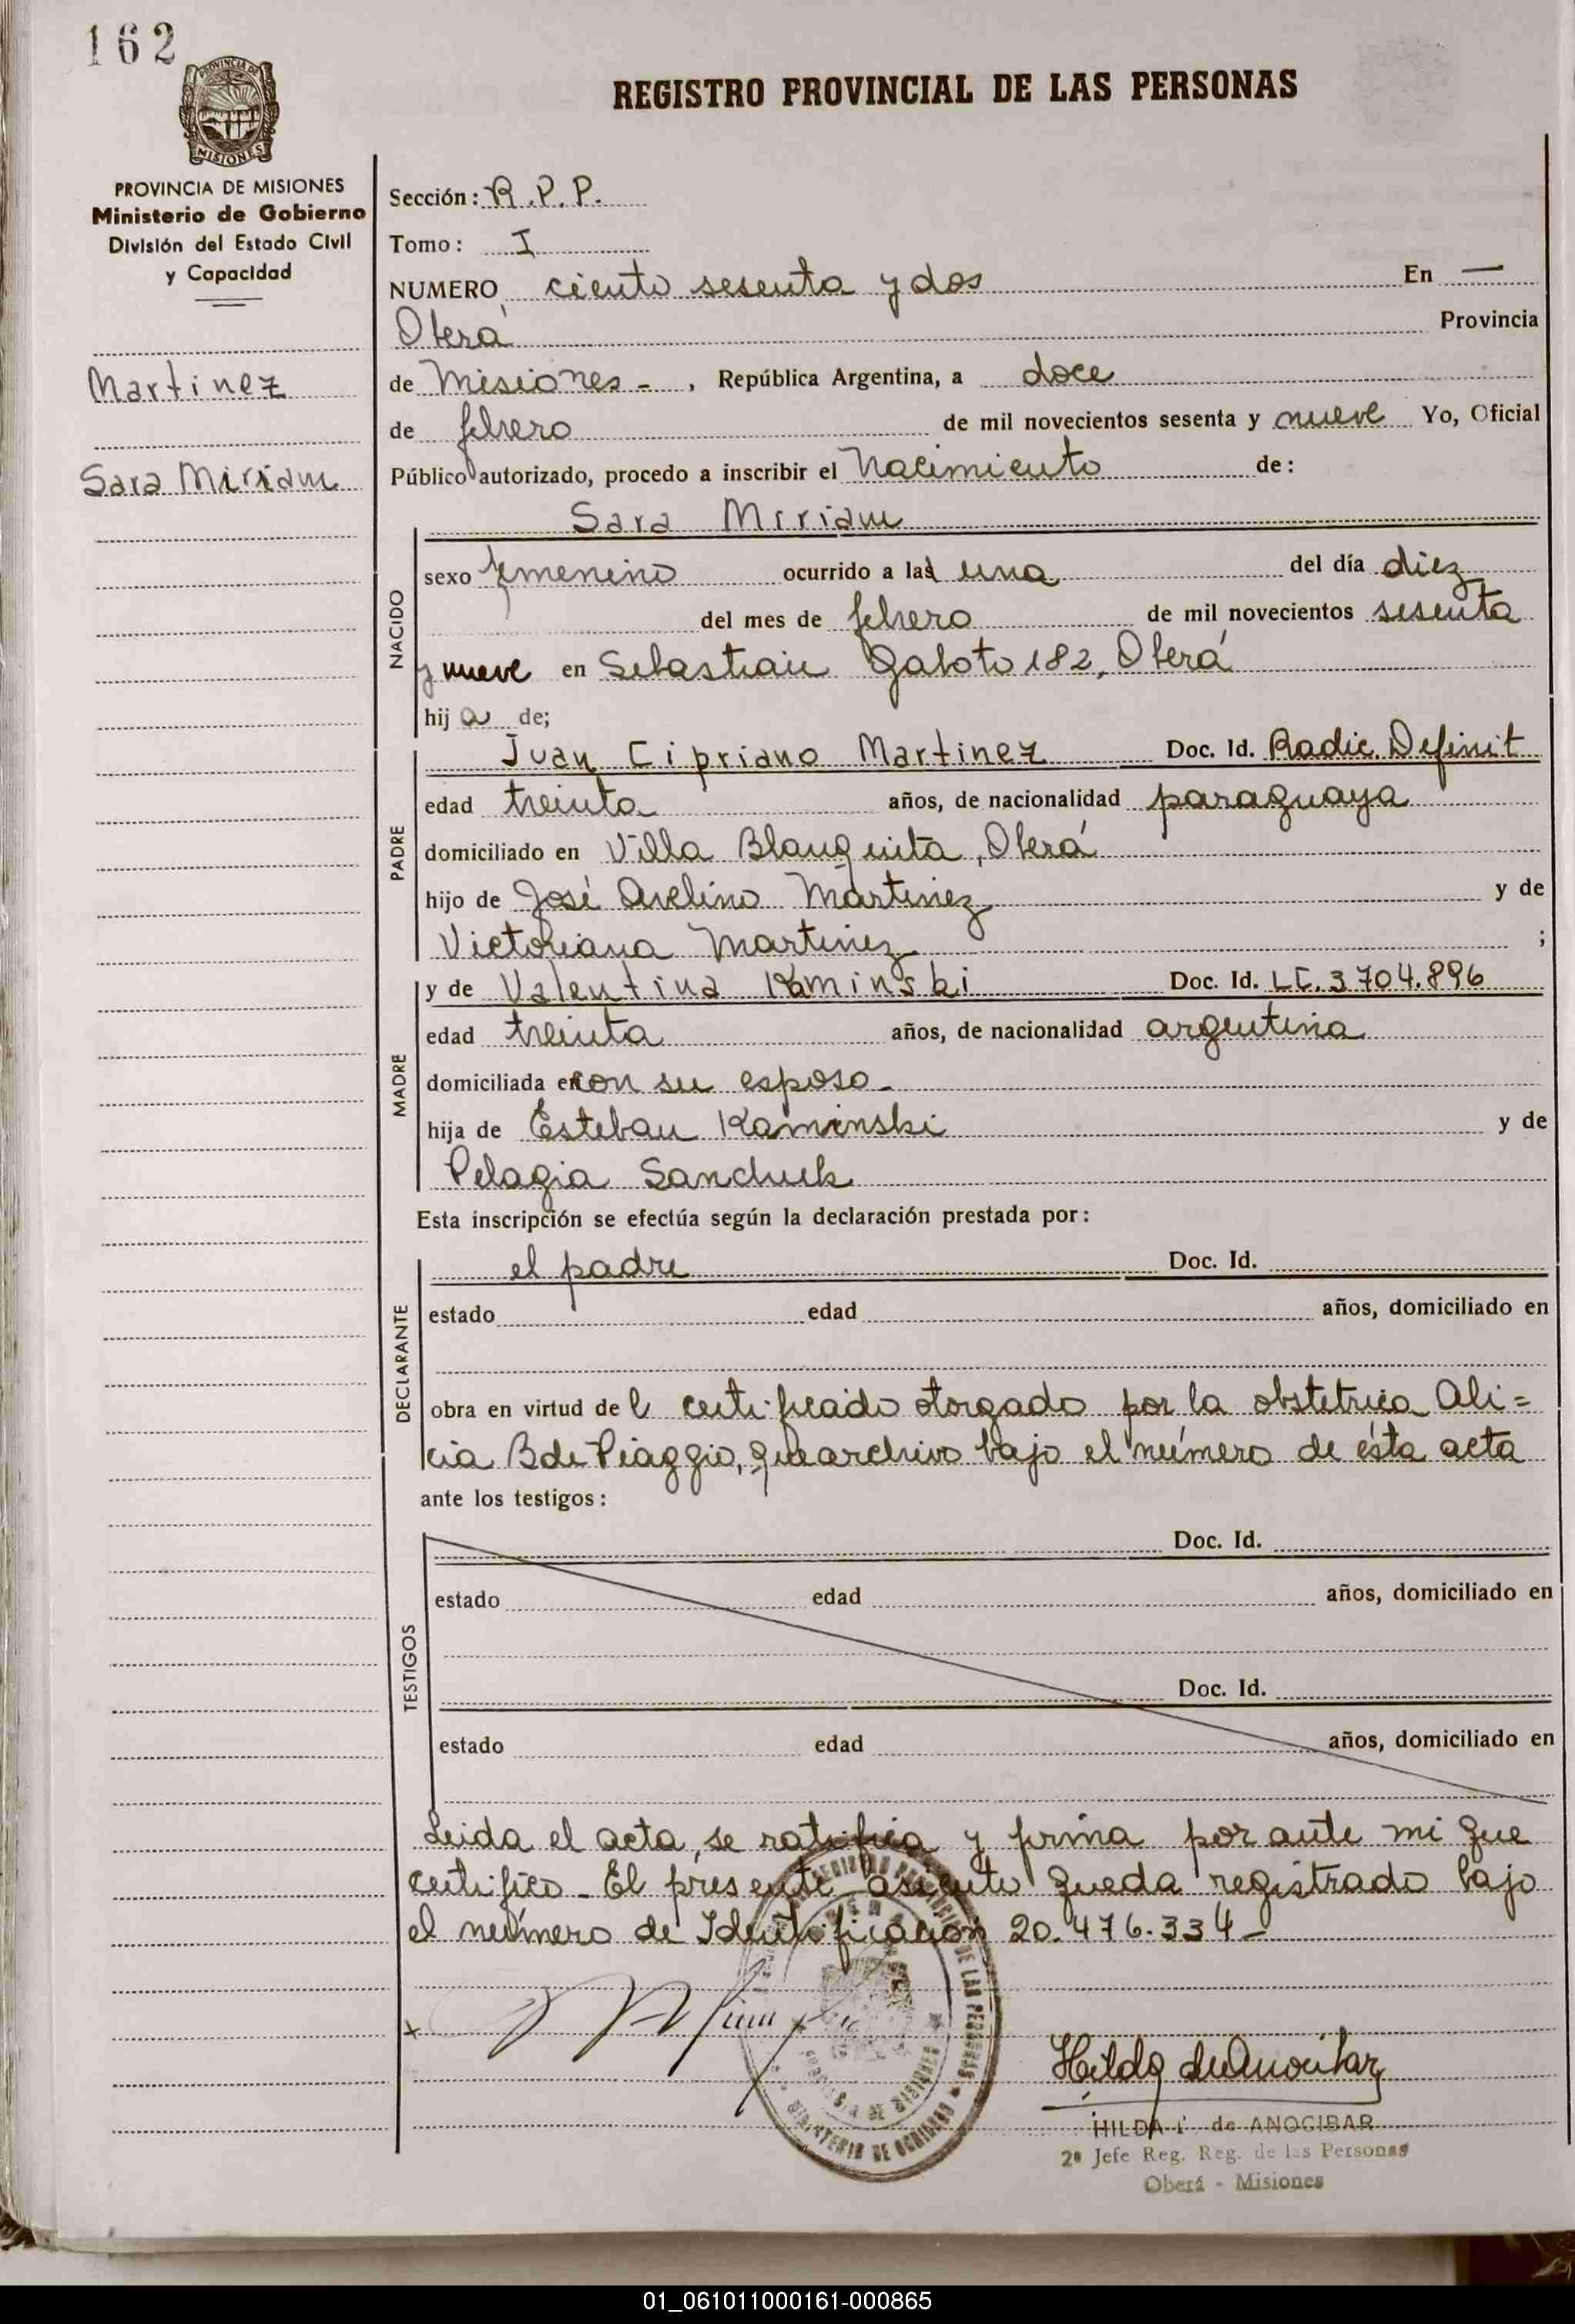 162
PROVINCIA DE
MISIONES
REGISTRO PROVINCIAL DE LAS PERSONAS
PROVINCIA DE MISIONES
Ministerio de Gobierno
División del Estado Civil
y Capacidad
Martinez
Sara Miriam
Sección: R.P.P.
Tomo: I
NUMERO ciento sesenta y dos En —
Oberá Provincia
de Misiones - , República Argentina, a doce
de febrero de mil novecientos sesenta y nueve Yo, Oficial
Público autorizado, procedo a inscribir el Nacimiento de:
Sara Miriam
NACIDO
sexo femenino ocurrido a las una del día diez
del mes de febrero de mil novecientos sesenta
y nueve en Sebastian Gaboto 182, Oberá
hija de;
PADRE
Juan Cipriano Martinez Doc. Id. Radic. Definit
edad treinta años, de nacionalidad paraguaya
domiciliado en Villa Blanquita, Oberá
hijo de José Avelino Martinez y de
Victoriana Martinez ;
MADRE
y de Valentina Kaminski Doc. Id. LC. 3.704.896
edad treinta años, de nacionalidad argentina
domiciliada en con su esposo -
hija de Esteban Kaminski y de
Pelagia Sanchuk
Esta inscripción se efectúa según la declaración prestada por:
DECLARANTE
el padre Doc. Id.
estado edad años, domiciliado en
obra en virtud del certificado otorgado por la obstetrica Ali=
cia B de Piaggio, que archivo bajo el número de ésta acta
ante los testigos:
TESTIGOS
Doc. Id.
estado edad años, domiciliado en
Doc. Id.
estado edad años, domiciliado en
Leida el acta, se ratifica y firma por ante mi que
certifico - El presente asiento queda registrado bajo
el número de Identificación 20.476.334 -
x
DE LAS PERSONAS
PROVINCIA DE MISIONES
MINISTERIO DE GOBIERNO
Hilda de Anocibar
HILDA de ANOCIBAR
2º Jefe Reg. Reg. de las Personas
Oberá - Misiones
01_061011000161-000865